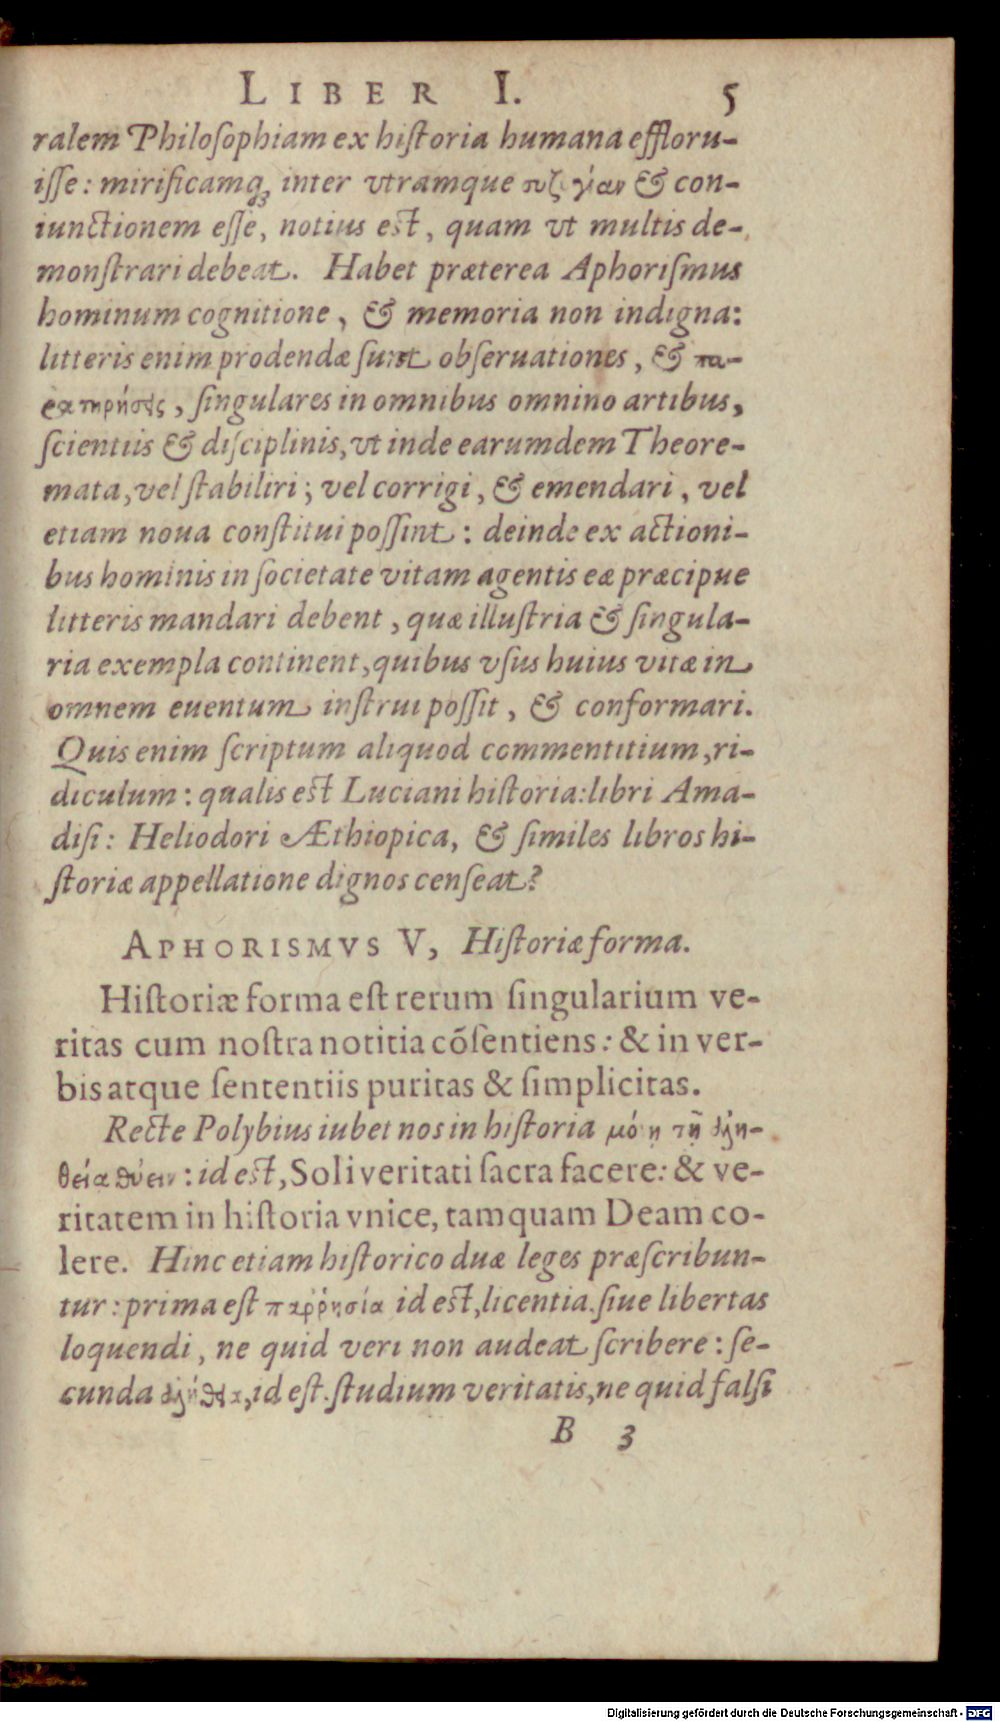 LIBER I. 5
ralem Philoſophiam ex hiſtoria humana effloru-
iſſe: mirificamq́ꝫ inter vtramque συζυγίαν & con-
iunctionem eſſe, notius eſt, quam vt multis de-
monſtrari debeat. Habet præterea Aphoriſmus
hominum cognitione, & memoria non indigna:
litteris enim prodendæ ſunt obſeruationes, & πα-
ρατηρήσεις, ſingulares in omnibus omnino artibus,
ſcientiis & diſciplinis, vt inde earumdem Theore-
mata, vel ſtabiliri; vel corrigi, & emendari, vel
etiam noua conſtitui poſſint: deinde ex actioni-
bus hominis in ſocietate vitam agentis eæ præcipue
litteris mandari debent, quæ illuſtria & ſingula-
ria exempla continent, quibus vſus huius vitæ in
omnem euentum inſtrui poſſit, & conformari.
Quis enim ſcriptum aliquod commentitium, ri-
diculum: qualis eſt Luciani hiſtoria: libri Ama-
diſi: Heliodori Æthiopica, & ſimiles libros hi-
ſtoriæ appellatione dignos cenſeat?
APHORISMVS V, Hiſtoriæ forma.
Hiſtoriæ forma eſt rerum ſingularium ve-
ritas cum noſtra notitia cõſentiens: & in ver-
bis atque ſententiis puritas & ſimplicitas.
Recte Polybius iubet nos in hiſtoria μόνῃ τῇ ἀλη-
θείᾳ θύειν: id eſt, Soli veritati ſacra facere: & ve-
ritatem in hiſtoria vnice, tamquam Deam co-
lere. Hinc etiam hiſtorico duæ leges præſcribun-
tur: prima eſt παῤῥησία id eſt, licentia. ſiue libertas
loquendi, ne quid veri non audeat ſcribere: ſe-
cunda ἀλήθεια, id eſt. ſtudium veritatis, ne quid falſi
B 3
Digitalisierung gefördert durch die Deutsche Forschungsgemeinschaft - DFG